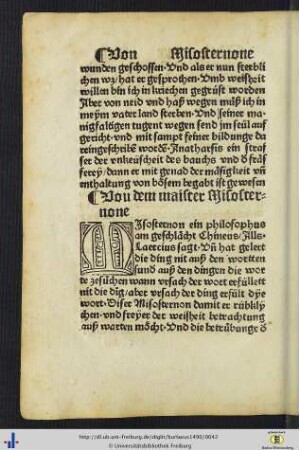 Von Misosternone
wunden geschossen · Vnd als er nun sterblich
en wz / hat er gesprochen · Vmb weißheit
willen bin ich in kriechen gegrüst worden
Aber von neid vnd haß wegen müß ich in
meym vater land sterben · Vnd seiner ma
nigfaltigen tugent wegen send jm seül auf
gericht · vnd mit sampt seiner bildunge da
rein geschribē wordē · Anatharsis ein straf
fer der vnkeüscheit des bauchs vnd ð fräs
serey / dann er mit genad der mäsigkeit vñ
enthaltung von bösem begabt ist gewesen
Von dem maister Misoster-
none
MIsosternon ein philosophus
am geschlächt Chineus / Alls
Laercius sagt · Vñ hat gelert
die ding nit auß den wortten
sund auß den dingen die wor
te zesüchen wann vrsach der wort erfüllett
nit die dīg / aber vrsach der ding erfült dye
wort · Diser Misosternon damit er rüblily
chen vnd freyer der weißheit betrachtung
auß warten möcht · Vnd die betrübunge ð
http://dl.ub.uni-freiburg.de/diglit/burlaeus1490/0043
© Universitätsbibliothek Freiburg